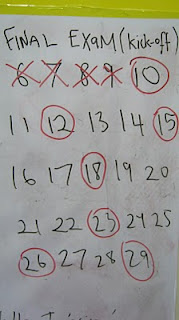 FINAL EXAM (kick-off)
6 7 8 9 10
11 12 13 14 15
16 17 18 19 20
21 22 23 24 25
26 27 28 29